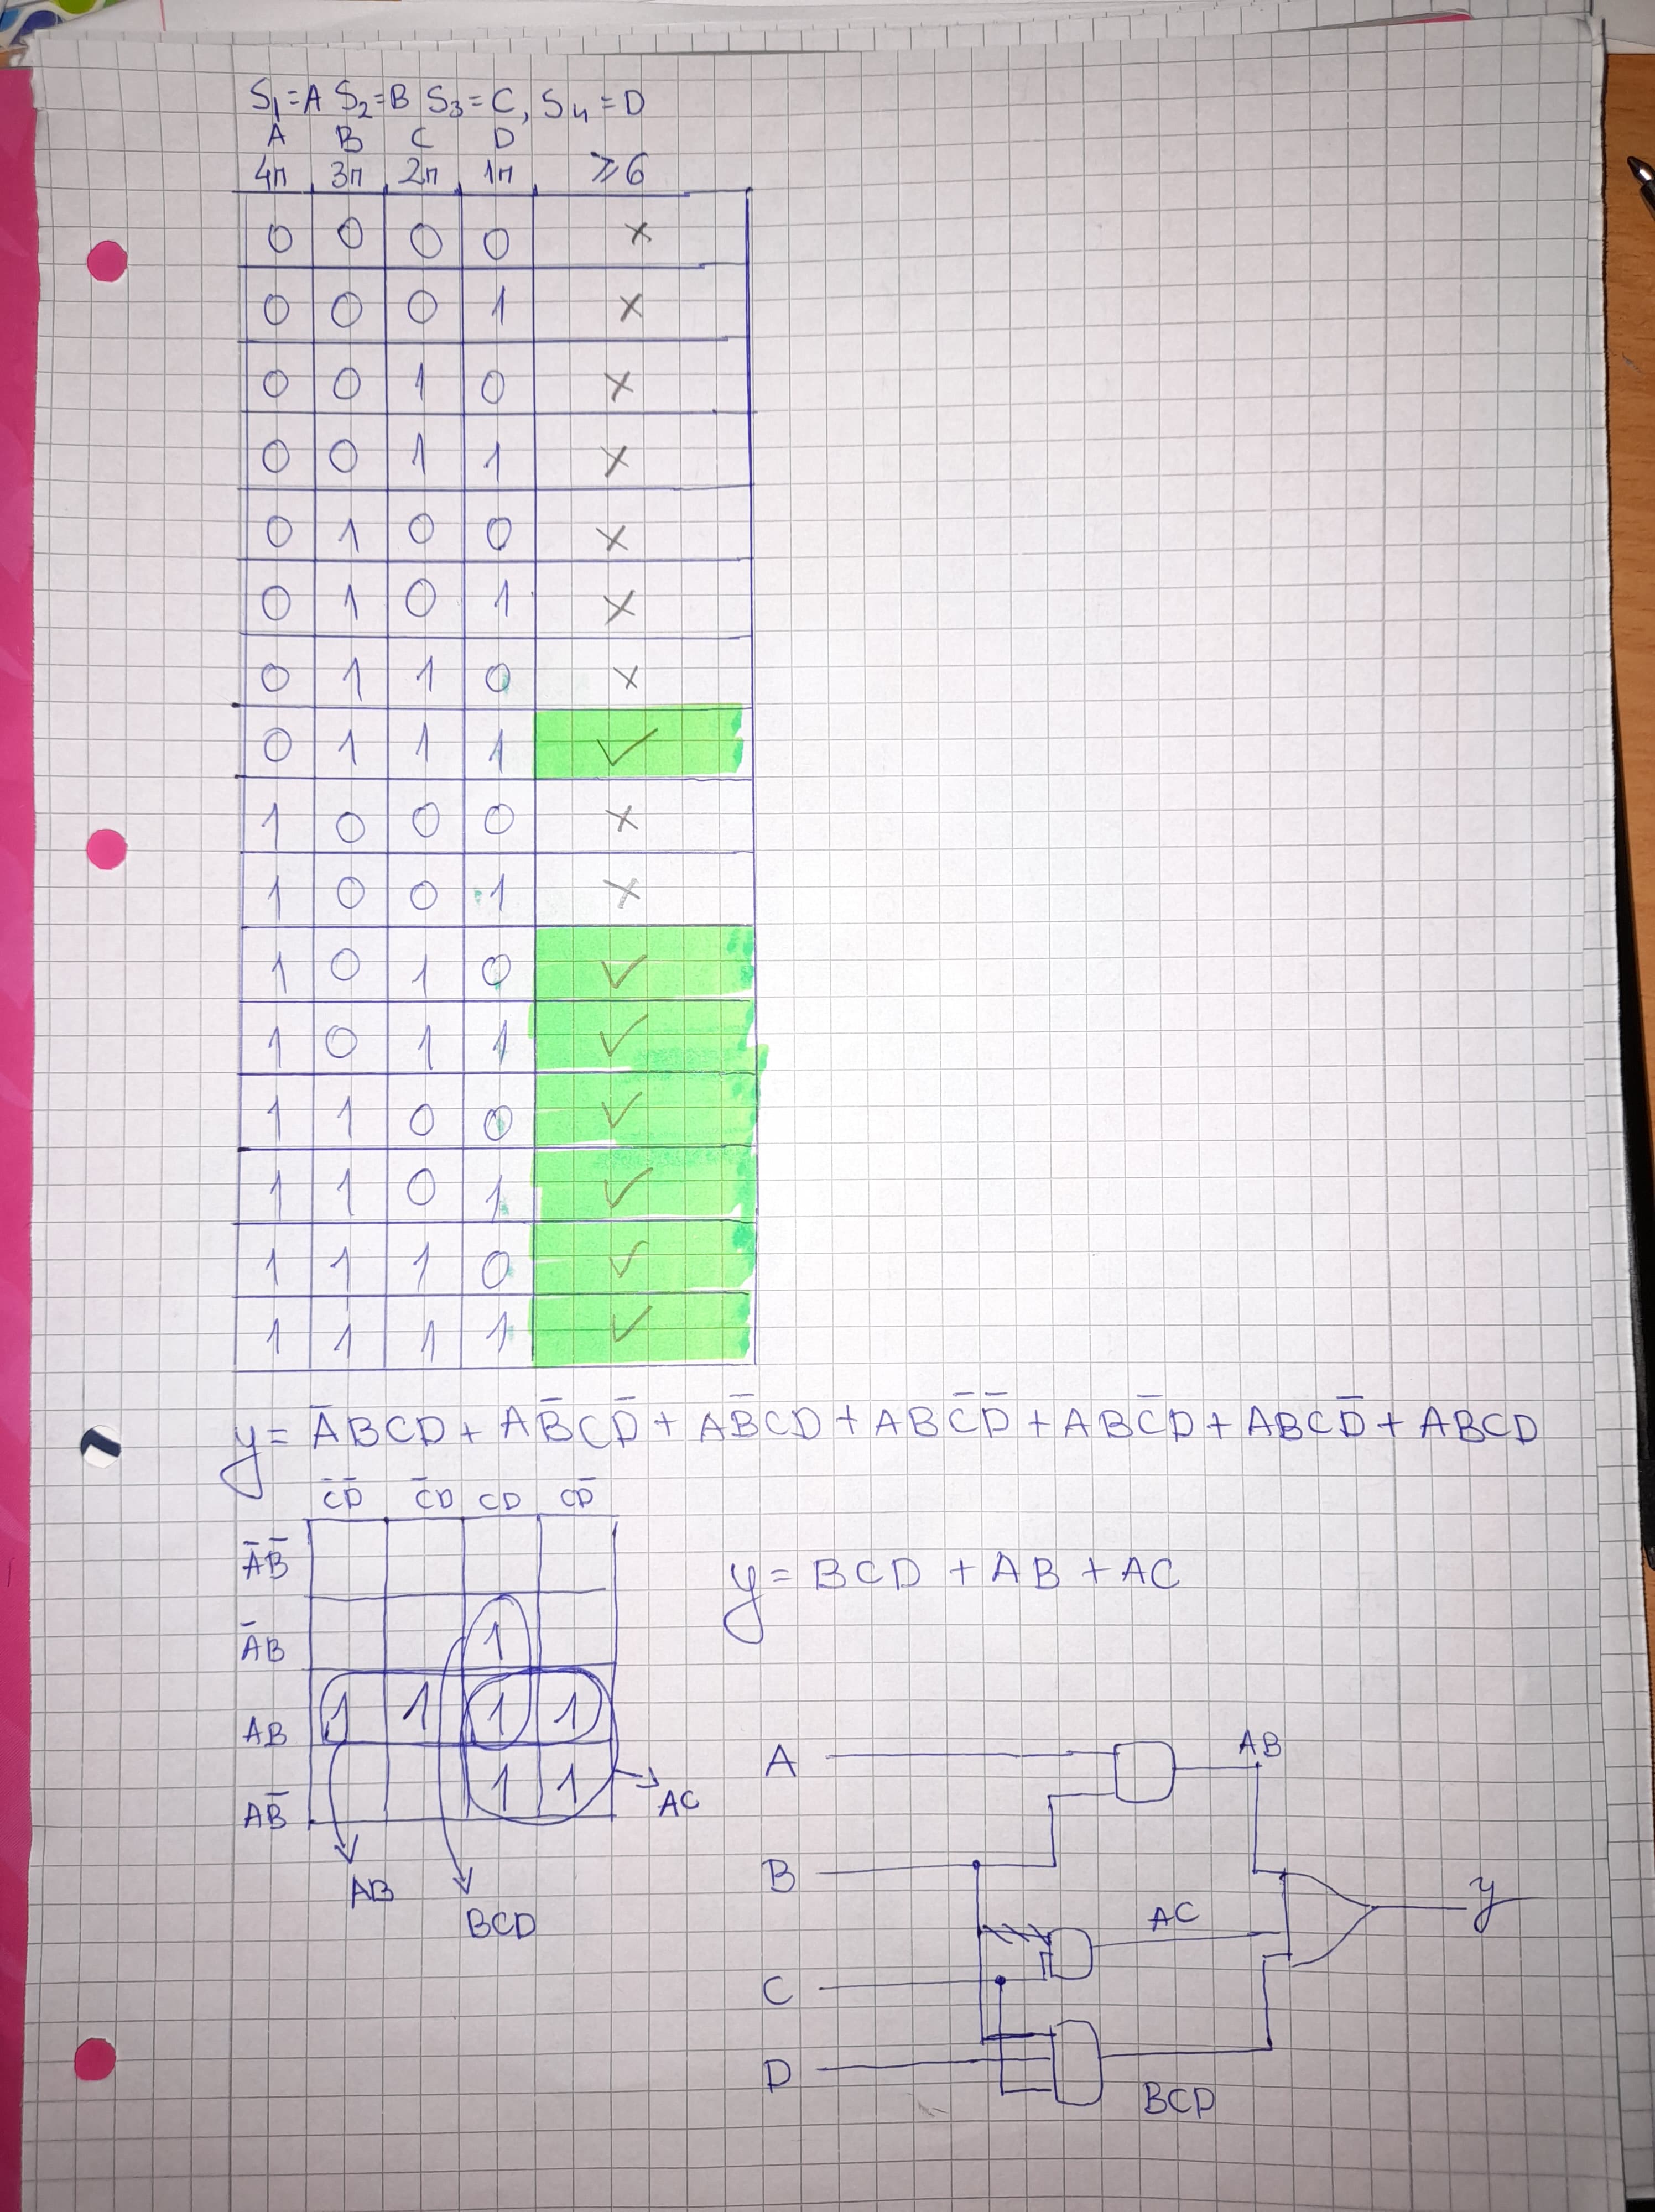 S₁=A S₂=B S₃=C, S₄=D
A B C D
4п 3п 2п 1п ≥6
0 0 0 0 ×
0 0 0 1 ×
0 0 1 0 ×
0 0 1 1 ×
0 1 0 0 ×
0 1 0 1 ×
0 1 1 0 ×
0 1 1 1 ✓
1 0 0 0 ×
1 0 0 1 ×
1 0 1 0 ✓
1 0 1 1 ✓
1 1 0 0 ✓
1 1 0 1 ✓
1 1 1 0 ✓
1 1 1 1 ✓
y = A̅BCD + AB̅CD̅ + AB̅CD + ABC̅D̅ + ABC̅D + ABCD̅ + ABCD
C̅D̅ C̅D CD CD̅
A̅B̅
A̅B 1
AB 1 1 1 1
AB̅ 1 1
AC
AB
BCD
y = BCD + AB + AC
A AB
B
AC y
C
D
BCD